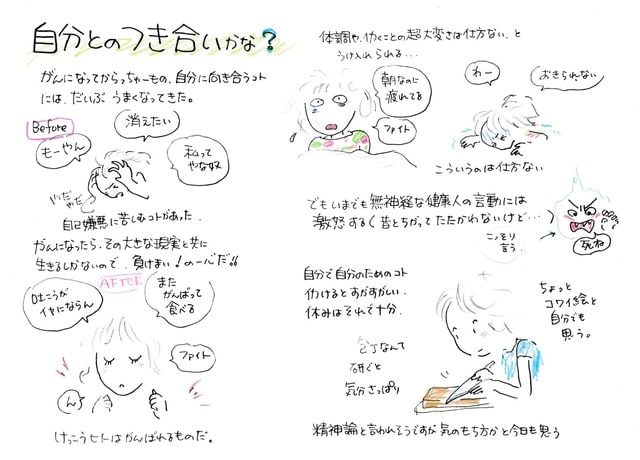 自分とのつき合いかな?
がんになってからっちゅーもの、自分に向き合うコト
には、だいぶ うまくなってきた。
Before
もーやん
消えたい
私って
やな奴
やだ
やだ
自己嫌悪に苦しむコトがあった。
がんになったら、その大きな現実と共に
生きるしかないので、負けまい!の一心だ!!
AFTER
吐こうが
イキにならん
また
がんばって
食べる
ファイト
ん
けっこうヒトはがんばれるものだ。
体調や、働くことの超大変さは仕方ない、と
うけ入れられる...
朝なのに
疲れてる
ファイト
わー
おきられない
こういうのは仕方ない
でもいまでも無神経な健康人の言動には
激怒する(昔とちがってたたかわないけど...
こっそり
言う、
死ね
ちょっと
コワイ絵と
自分でも
思う。
自分で自分のためのコト
働けるとすがすがしい、
休みはそれで十分、
包丁なんて
研ぐと
気分さっぱり
精神論と言われそうですが気のもち方かと今日も思う